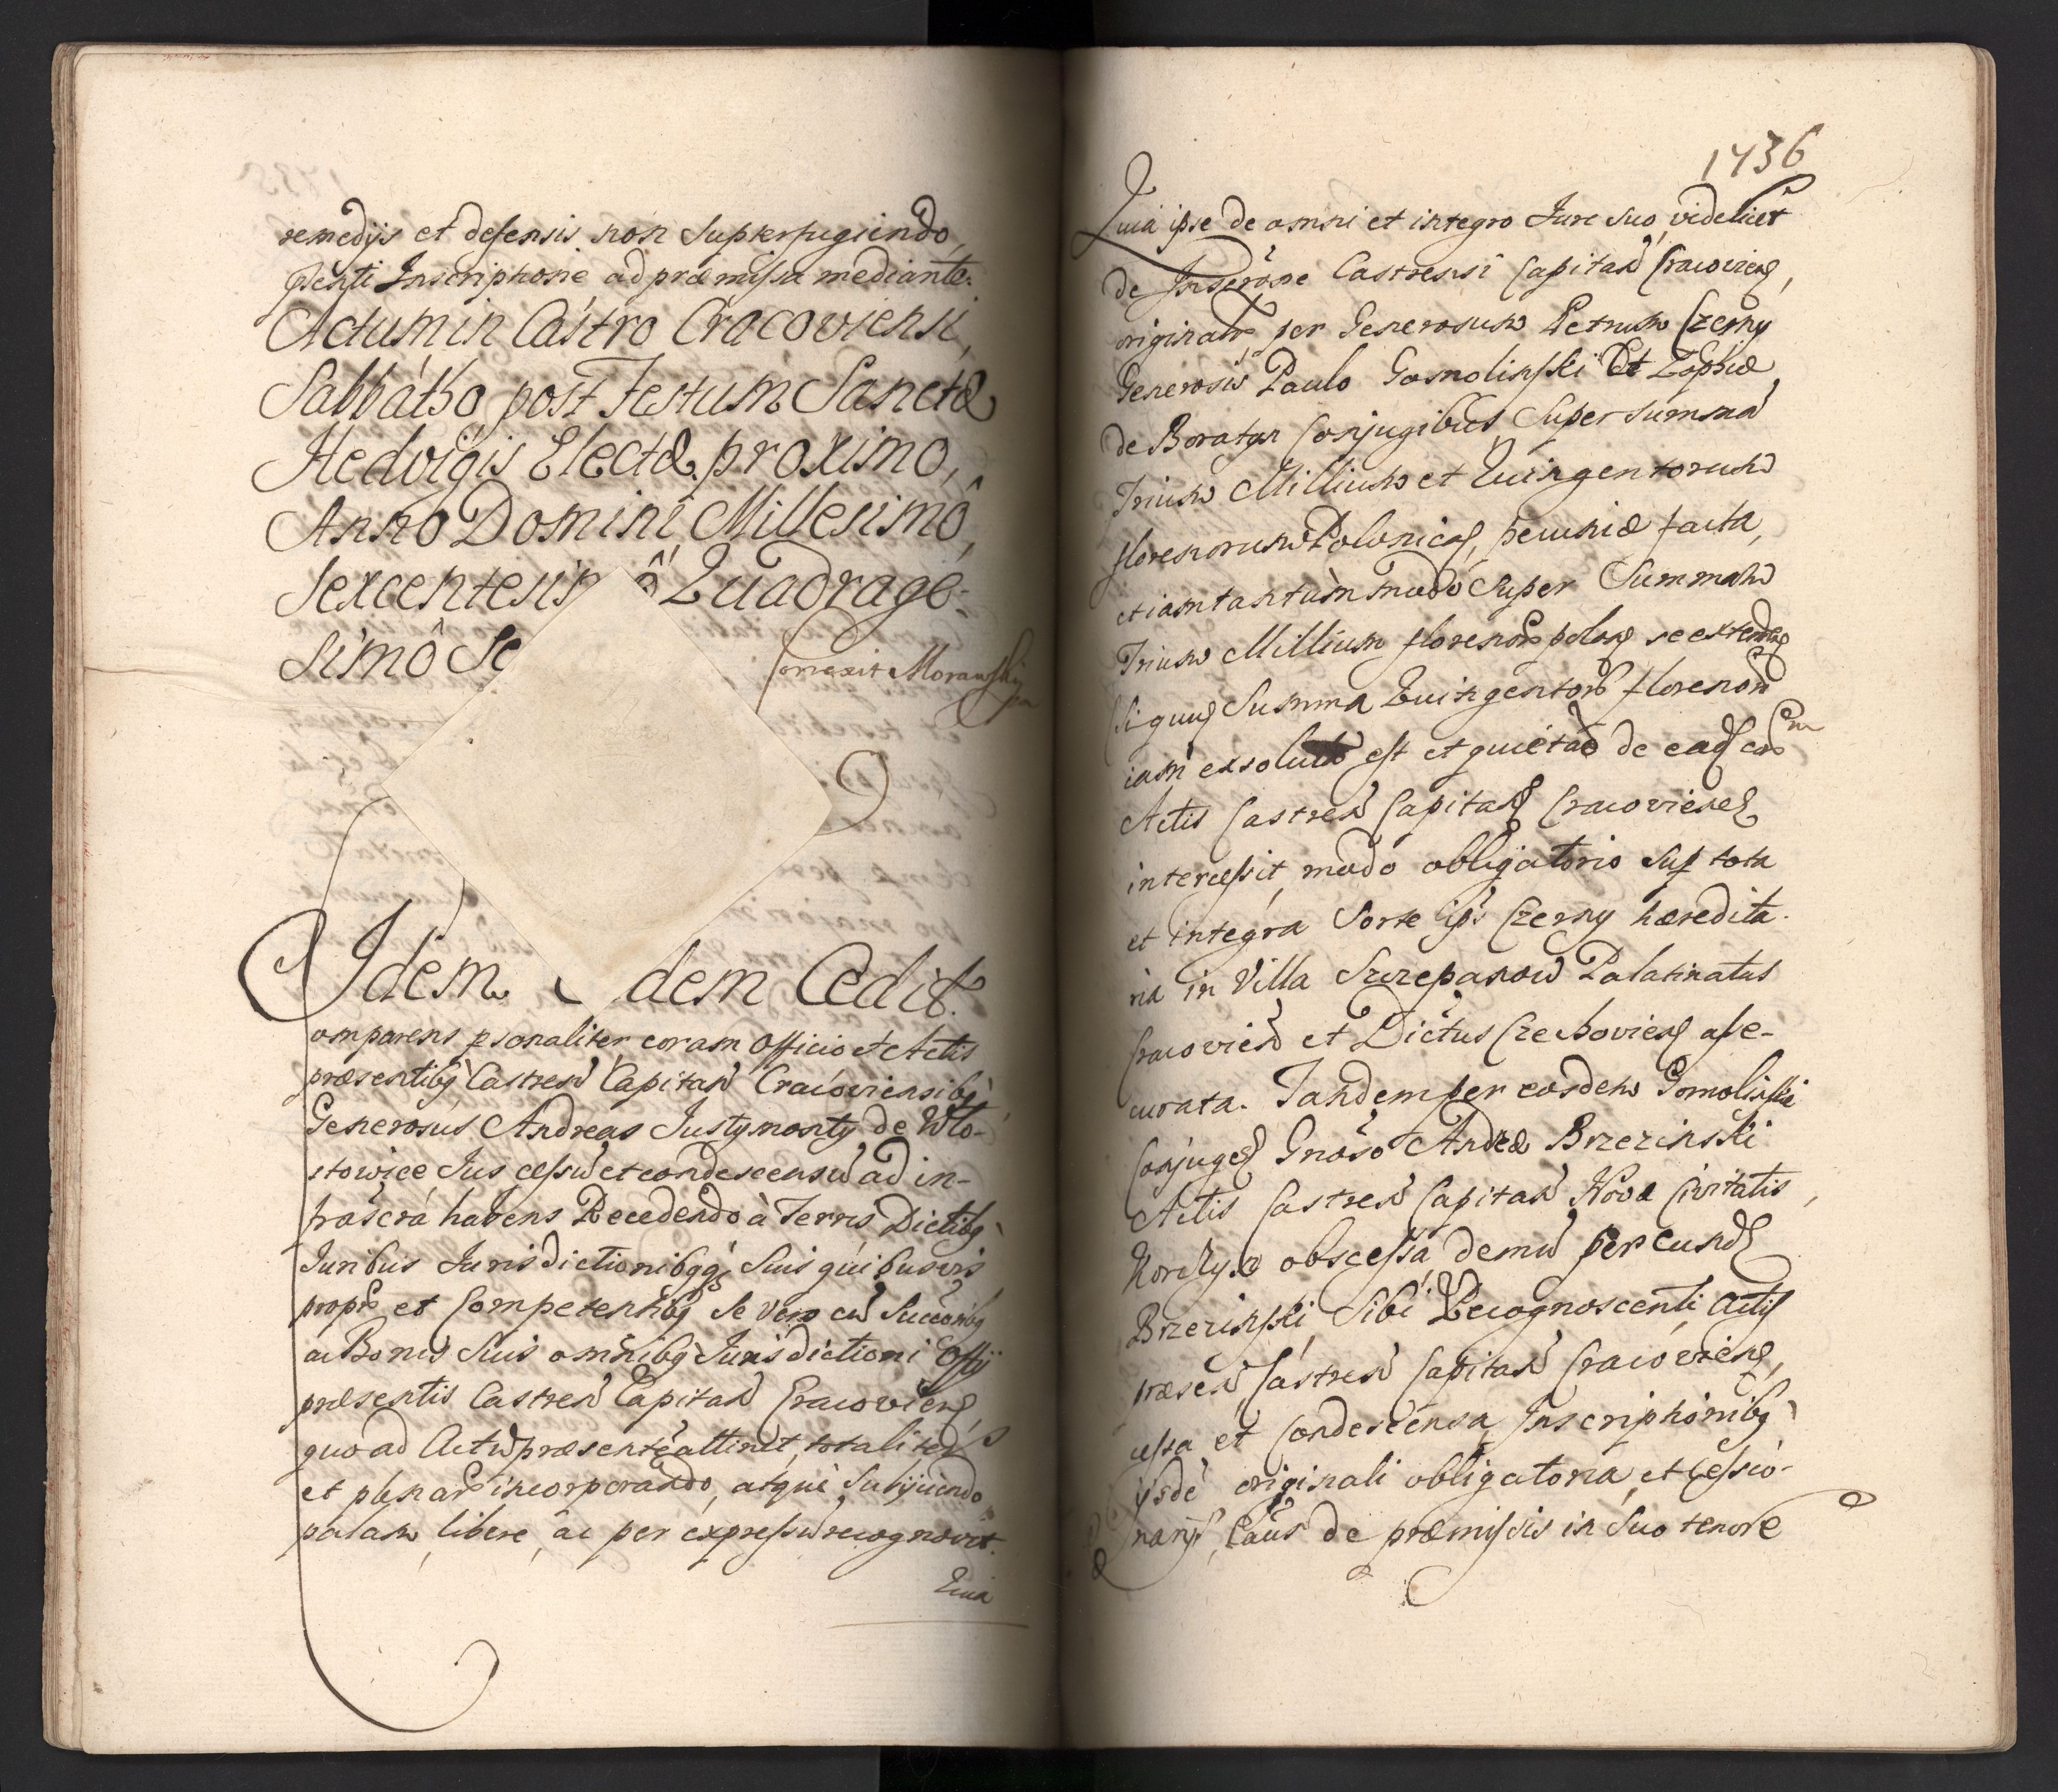 remedijs et defensis non Supterfugiendo,
psenti Inscriptione ad præmissa mediante.
Actum in Castro Cracoviensi,
Sabbatho post Festum Sanctæ
Hedvigis Electæ proximo,
Anno Domini Millesimô,
Sexcentesim ô Quadrage-
simô Se
Correxit Morawski
Idem dem Cedit.
omparens psonaliter coram Officio et Actis
præsentibq Castren Capitan Cracoviensibq
Generosus Andreas Justymonty de Wło-
stowice Jus cessu et condescensu ad in-
frascra habens Recedendo à Terris Dictibq
Juribus Jurisdictionibqq Suis quibusvis
propr et Competentibq Se vero cu Succoribq
ac Bonis Suis omnibq Jurisdictioni Offy
præsentis Castren Capitan Cracovien
quo ad Actu præsente attinet, totaliter
et plenar incorporando, atque Subijciendo
palam, libere, ac per expressu recognovit.
Quia
1736
Quia ipse de omni et integro Jure Suo, videlicet
de Inscrone Castrensi Capitan Cracovien,
originali per Generosum Petrum Czerny
Generosis Paulo Gomolinski Et Zophiæ
de Boratyn Conjugibus Super Summa
Trium Millium et Quingentorum
florenorum Polonical, pecuniæ facta,
etiam tantum modo Super Summam
Trium Millium florenor polon se extenden
Siquid Summa Quingentor florenor
iam exsoluta est et quietao de ead eor
Actis Castren Capitan Cracovien
intercessit, modo obligatorio Sup tota
et integra Sorte ips Czerny hæredita-
ria in Villa Szczepanow Palatinatus
Cracovien et Dictus Czechovien asse-
curata. Tandem per eosdem Gomolinskie
Conjuges Gnoso Andreæ Brzezinski
Actis Castren Capitan Novæ Civitatis,
Korczyn obscessa, demu per eund
Brzezinski Sibi Recognoscenti, Actis
præsen Castren Capitan Cracovien,
cessa et Condescensa, Inscriptionibq
ijsde originali obligatoria, et Cessio-
narijs, Laus de præmissis in Suo tenore